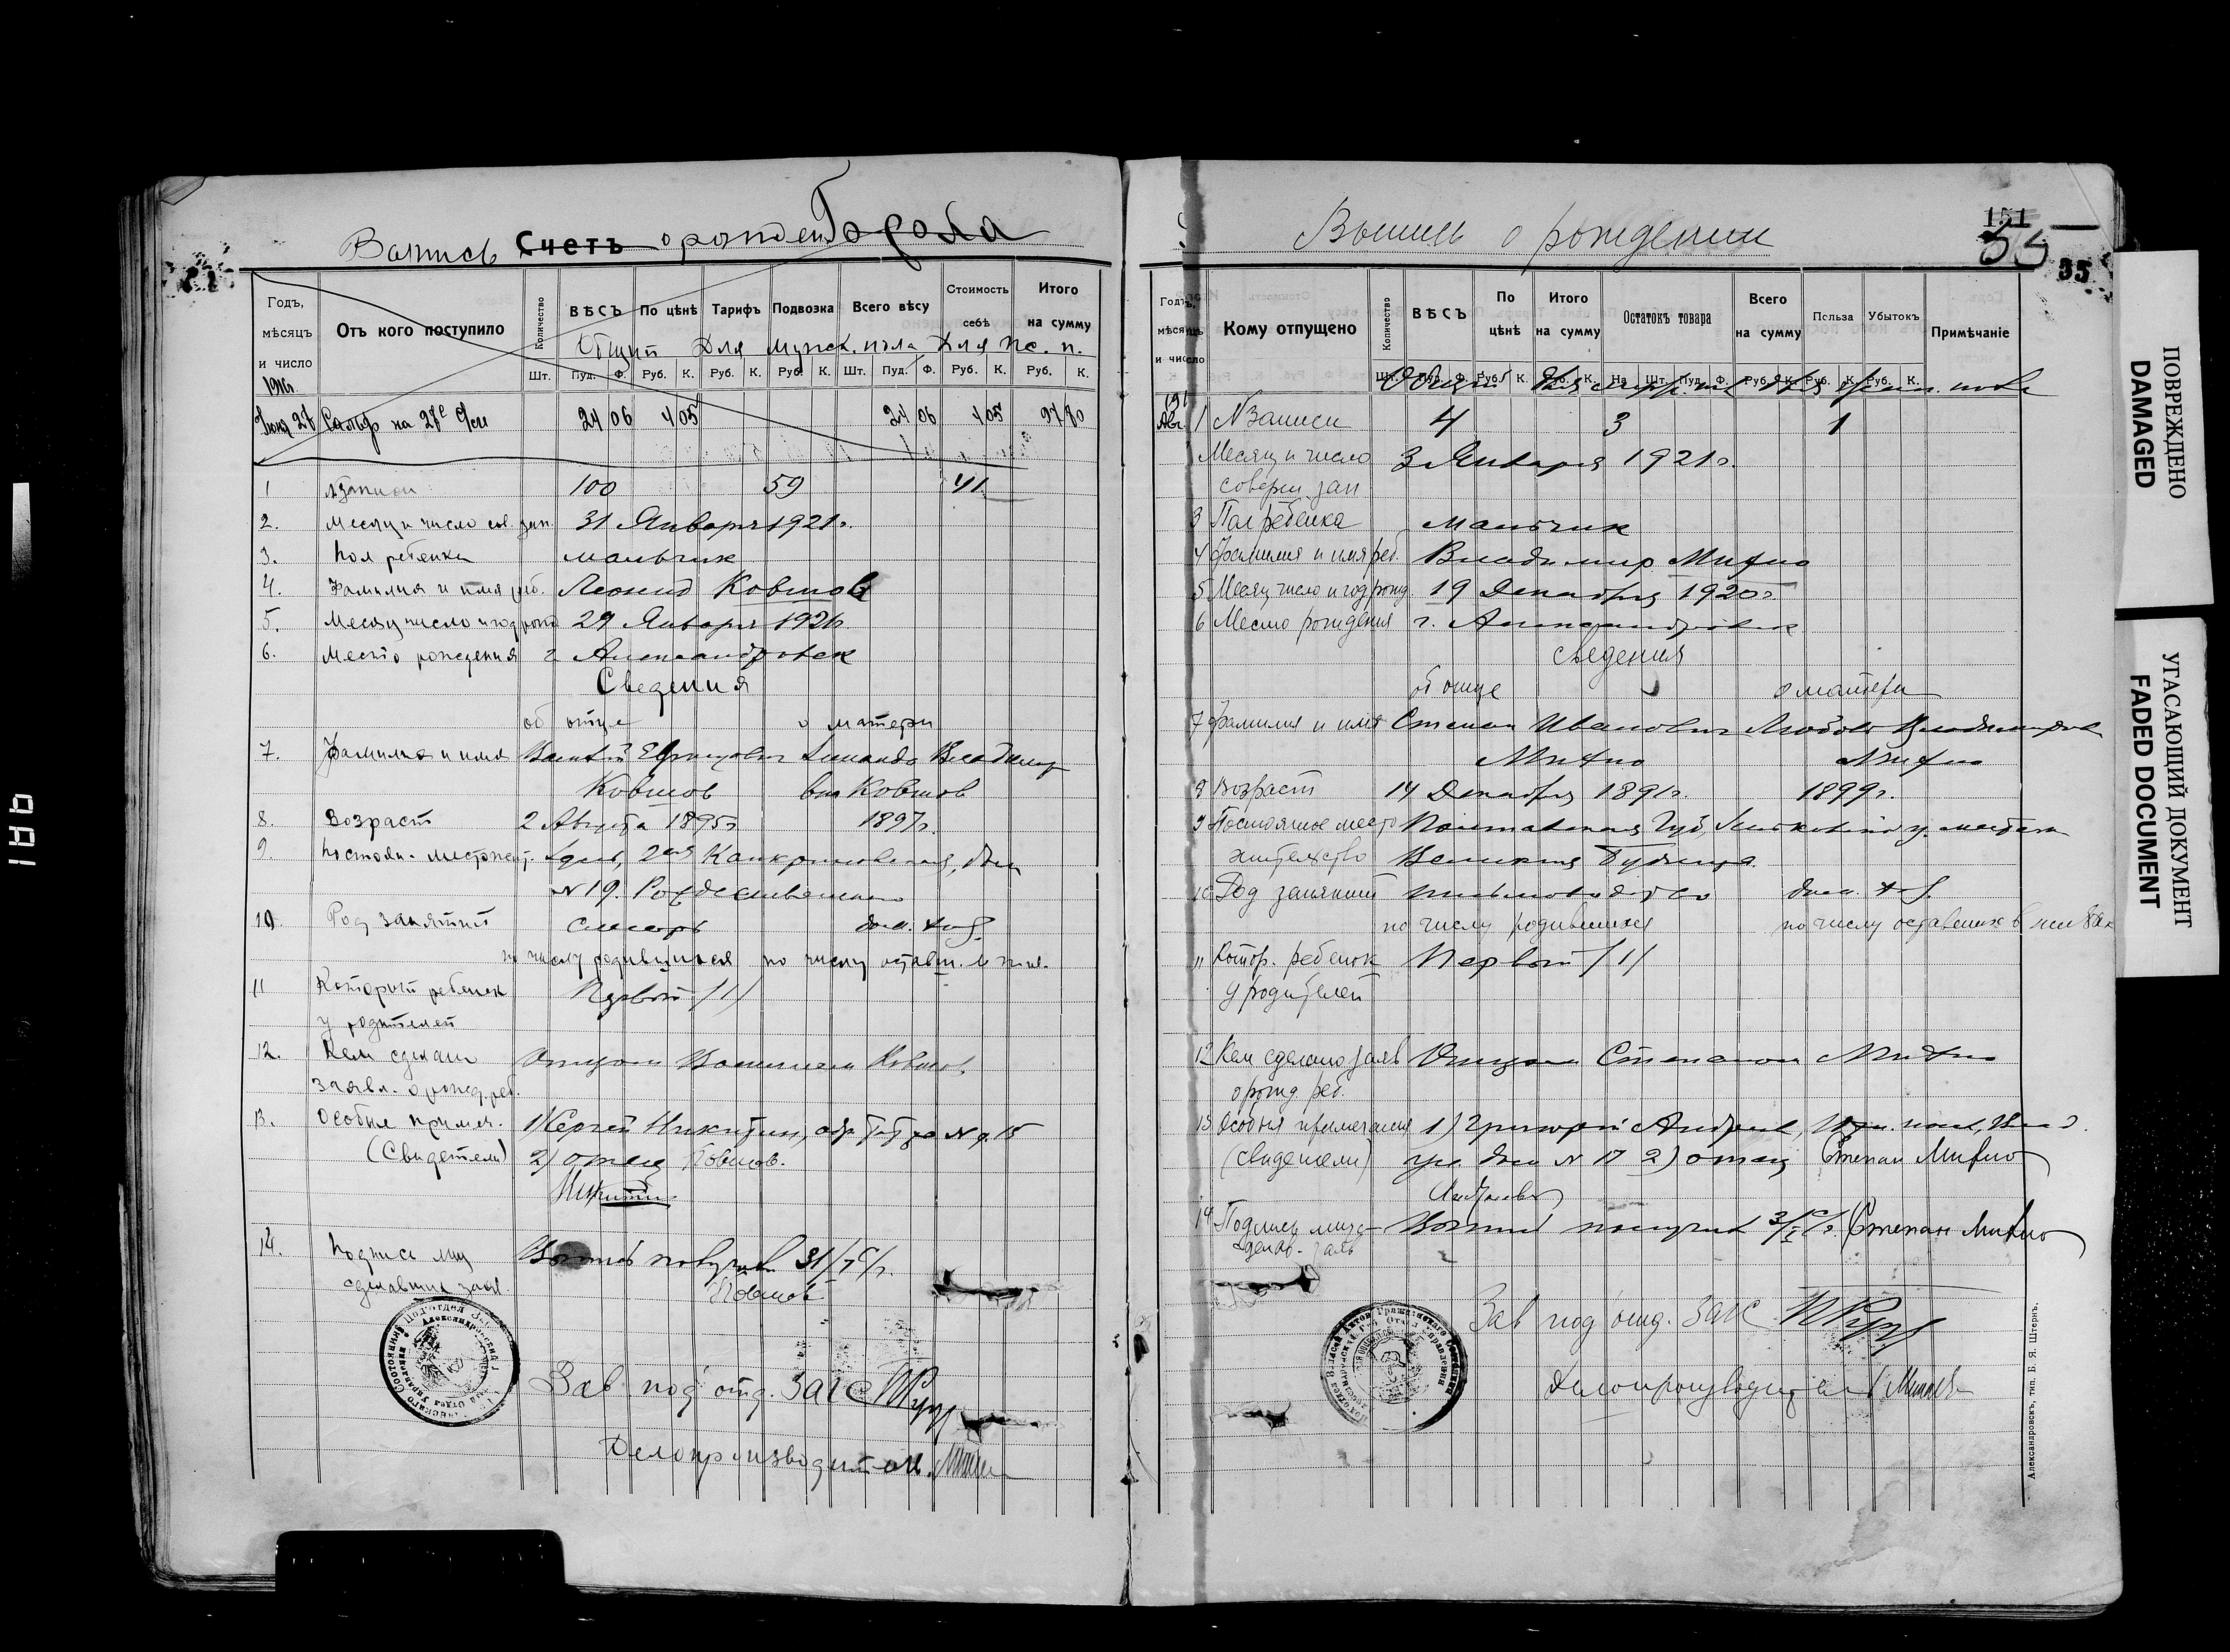 Запись Счетъ о рожден Гороха
Годъ, мѣсяцъ и число
Отъ кого поступило
Количество
ВѢСЪ
По цѣнѣ
Тарифъ
Подвозка
Всего вѣсу
Стоимость себѣ
Итого на сумму
Общий Для мужск. пола Для же. п.
Шт. Пуд. Ф. Руб. К. Руб. К. Руб. К. Шт. Пуд. Ф. Руб. К. Руб. К.
1916
Июня 27 Сальдо на 27е 24 06 405 24 06 405 97 80
1 № записи 100 59 41
2. Месяц и число сов. зап. 31 Января 1921 г.
3. Пол ребенка мальчик
4. Фамилия и имя реб. Леонид Ковшов
5. Месяц число и год рожд 29 Января 1921г.
6. Место рождения г. Александровск
Сведения
об отце о матери
7. Фамилия и имя
Ковшов Ковшов
8. Возраст 2 Августа 1895г 1897г.
9. Постоян. местожит. 2ая
№ 19.
10. Род занятий слесарь дом. хоз.
по числу родившихся по числу оставш. в жив.
11 Который ребенок Первый /1/
у родителей
12. Кем сделано Отцом Ковшов
заявл. о рожд. реб.
13. Особые примеч. 1) Сергей Никитин, № д. 15
(Свидетели) 2) отец Ковшов.
Никитин
14. Подпись лиц получил 31/I с/г.
сделавших заяв. Ковшов
Зав под'отд. Загс
Делопроизводитель
Выпись о рождении
151
55
35
Годъ, мѣсяцъ и число
Кому отпущено
Количество
ВѢСЪ
По цѣнѣ
Итого на сумму
Остатокъ товара
Всего на сумму
Польза
Убытокъ
Примѣчаніе
Шт. Пуд. Ф. Руб. К. Руб. К. На Шт. Пуд. Ф. Руб. К. Руб. К. Руб. К.
Общий Для муж. пола Для женск. пола
1 № Записи 4 3 1
Месяц и число 3 Января 1921 г.
соверш зап
3 Пол ребенка мальчик
4 Фамилия и имя реб. Владимир Михно
5 Месяц число и год рожд 19 Декабря 1920 г.
6 Место рождения г. Александровск
сведения
об отце о матери
7 Фамилия и имя Степан Иванович Любовь Владимировна
Михно Михно
8 Возраст 14 Декабря 1891г. 1899г.
9 Постоянное место Полтавская Губ.
жительство Великия Будища
10 Род занятий дом. хоз.
по числу родившихся по числу оставшихся в живых
11 Котор. ребенок Первый /1/
у родителей
12 Кем сделано заяв Отцом Степаном Михно
о рожд реб.
13 Особыя примечания 1) Григорий
(свидетели) дом № 17 2) отец Степан Михно
14 Подпись лица получил 3/I с/г. Степан Михно
сделав. заяв
Зав под'отд. Загс
Делопроизводитель
Александровскъ, тип. Б. Я. Штернъ.
ПОВРЕЖДЕНО
DAMAGED
УГАСАЮЩИЙ ДОКУМЕНТ
FADED DOCUMENT